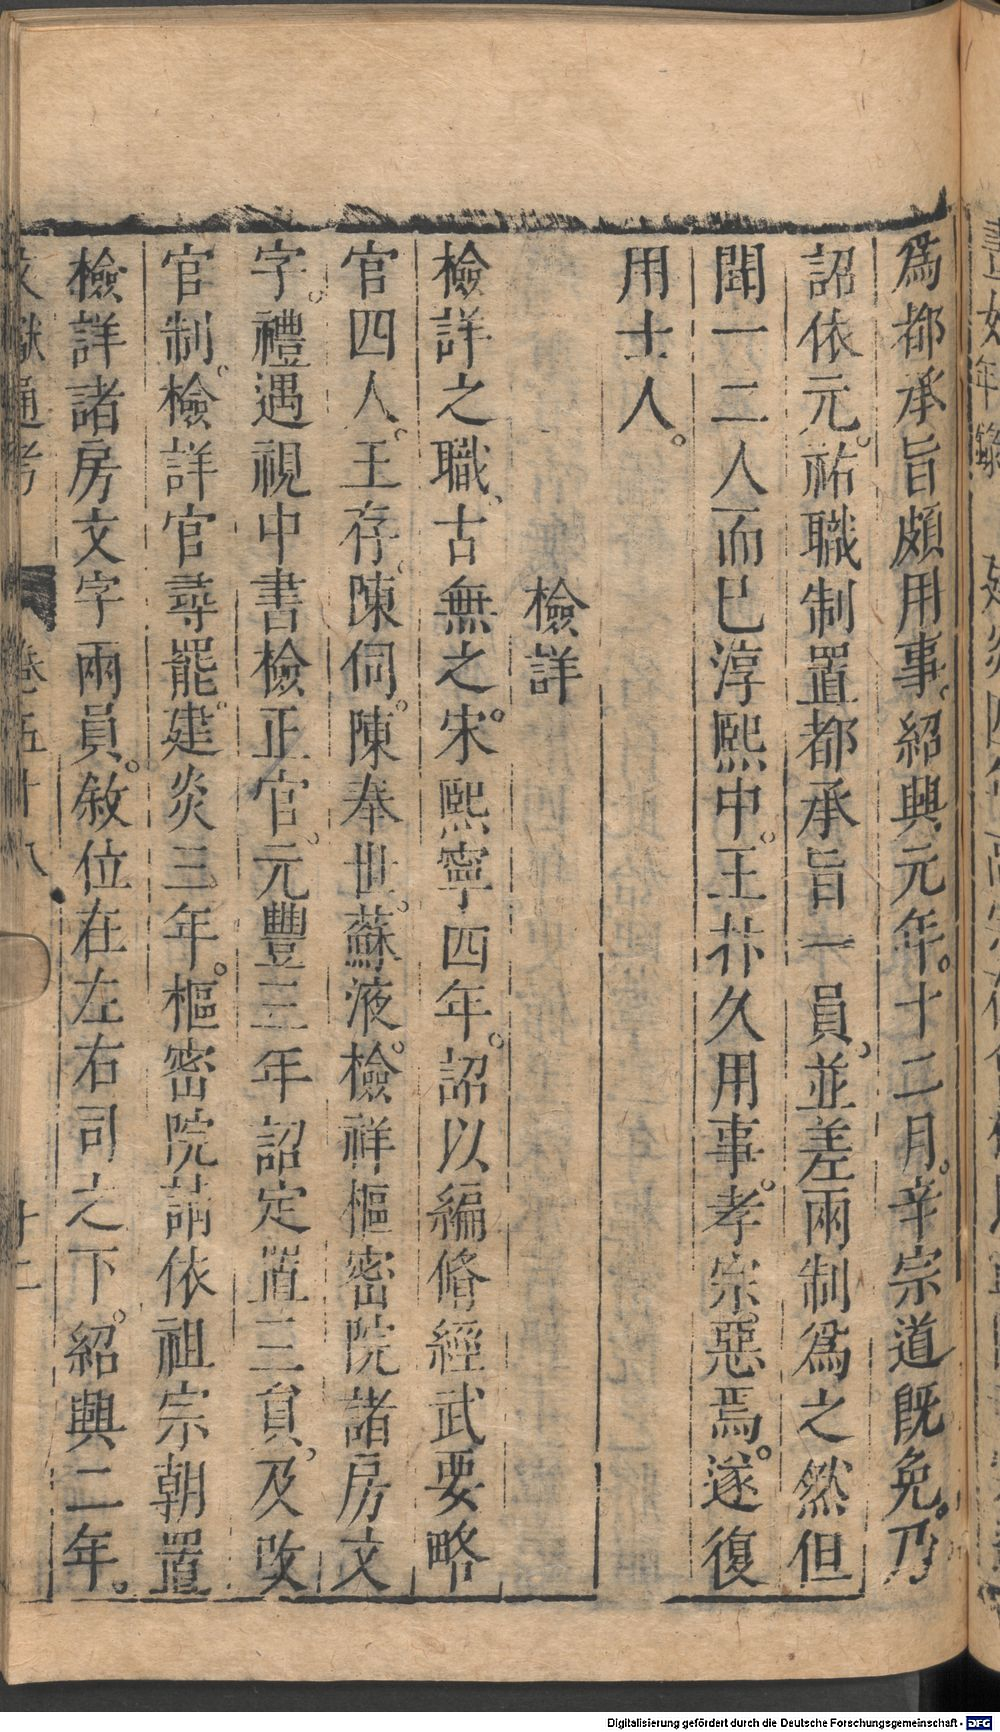 爲都承旨頗用事紹興元年十二月辛宗道既免乃
詔依元祐職制置都承旨一員並差兩制爲之然但
聞一二人而已淳熙中王抃久用事孝宗惡焉遂復
用士人
檢詳
檢詳之職古無之宋熙寧四年詔以編脩經武要略
官四人王存陳伺陳奉世蘇液檢祥樞密院諸房文
字禮遇視中書檢正官元豐三年詔定置三員及改
官制檢詳官尋罷建炎三年樞密院請依祖宗朝置
檢詳諸房文字兩員敘位在左右司之下紹興二年
文獻通考 卷五十八 十二
Digitalisierung gefördert durch die Deutsche Forschungsgemeinschaft - DFG